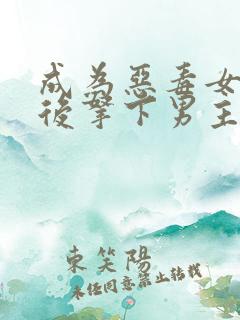 成為惡毒女
後拏下男主
東笑陽
未任同意禁止轉載